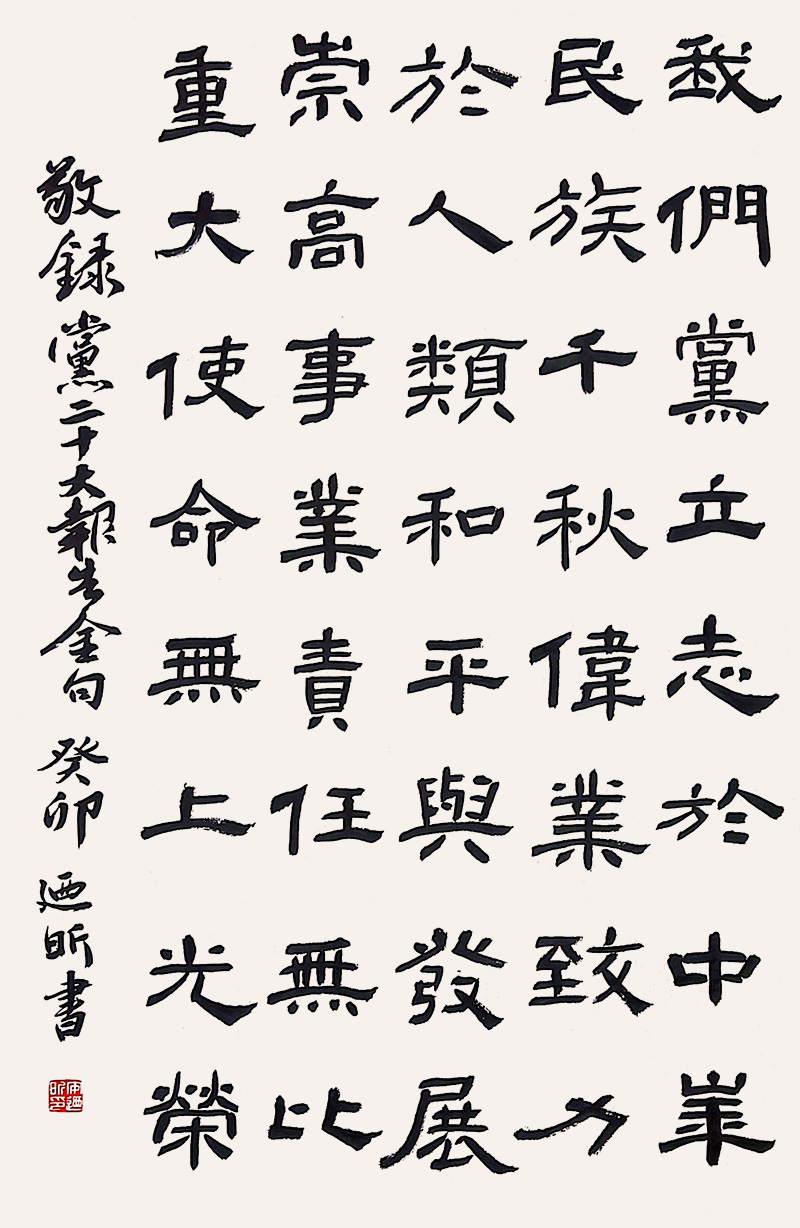 我們黨立志於中華
民族千秋偉業致力
於人類和平與發展
崇高事業責任無比
重大使命無上光榮
敬錄黨二十大報告金句 癸卯 廼昕書